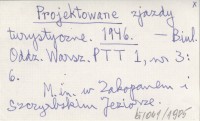 x
Projektowane zjazdy
turystyczne. 1946. — Biul.
Oddz. Warsz. PTT 1, nr 3:
6.
M.in. w Zakopanem i
Szczyrbskim Jeziorze.
61049/1985